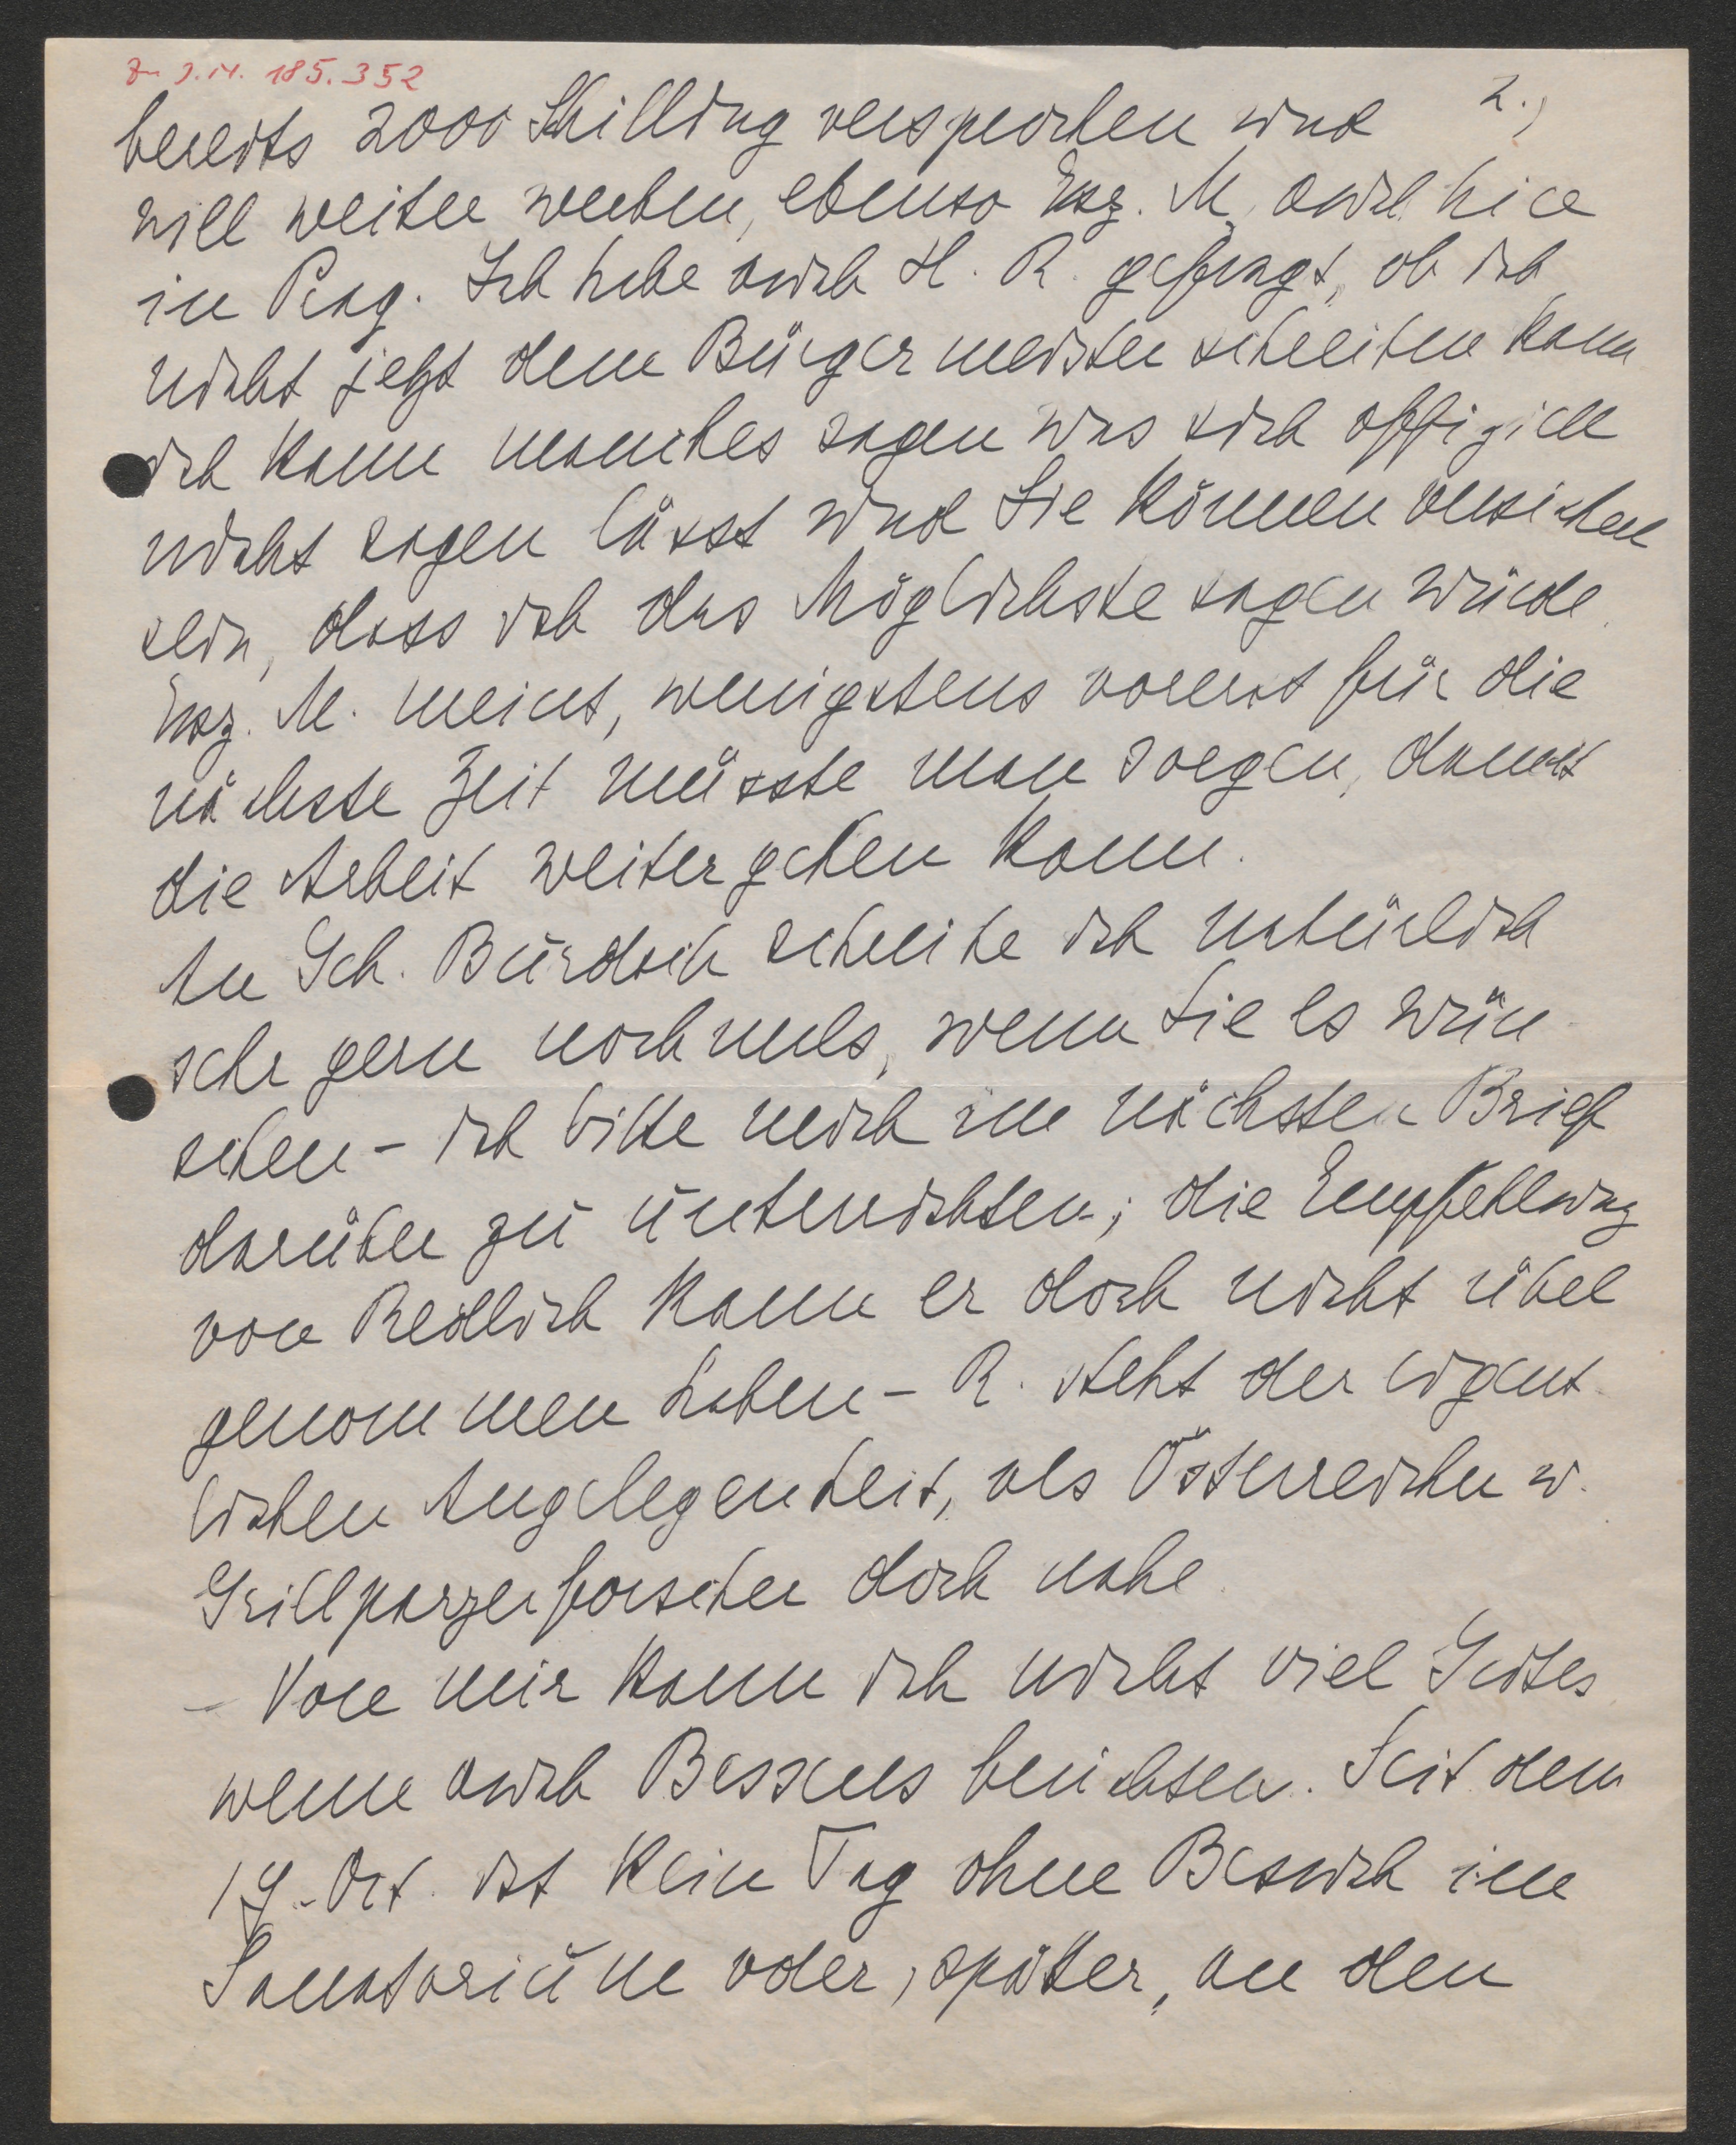 Zu J.N. 185.352
2.)
bereits 2000 Shilling versprochen und
will weiter werben, ebenso Exz. M. auch hier
in Prag. Ich habe auch H. R. gefragt, ob ich
nicht jetzt dem Bürgermeister schreiben kann
ich kann manches sagen was sich offiziell
nicht sagen lässt und Sie können versichert
sein, dass ich das Möglichste sagen würde.
Exz. M. meint, wenigstens vorerst für die
nächste Zeit müsste man sorgen, damit
die Arbeit weitergehen kann.
An Sch. Burdach schreibe ich natürlich
sehr gern nochmals, wenn Sie es wün
schen – ich bitte mich im nächsten Brief
darüber zu unterrichten; die Empfehlung
von Redlich kann er doch nicht übel
genommen haben – R. steht der eigent
lichen Angelegenheit, als Österreicher u.
Grillparzerforscher doch nahe.
– Von mir kann ich nicht viel Gutes
wenn auch Besseres berichten. Seit dem
19. Oct. ist kein Tag ohne Besuch im
Sanatorium oder, später, an den